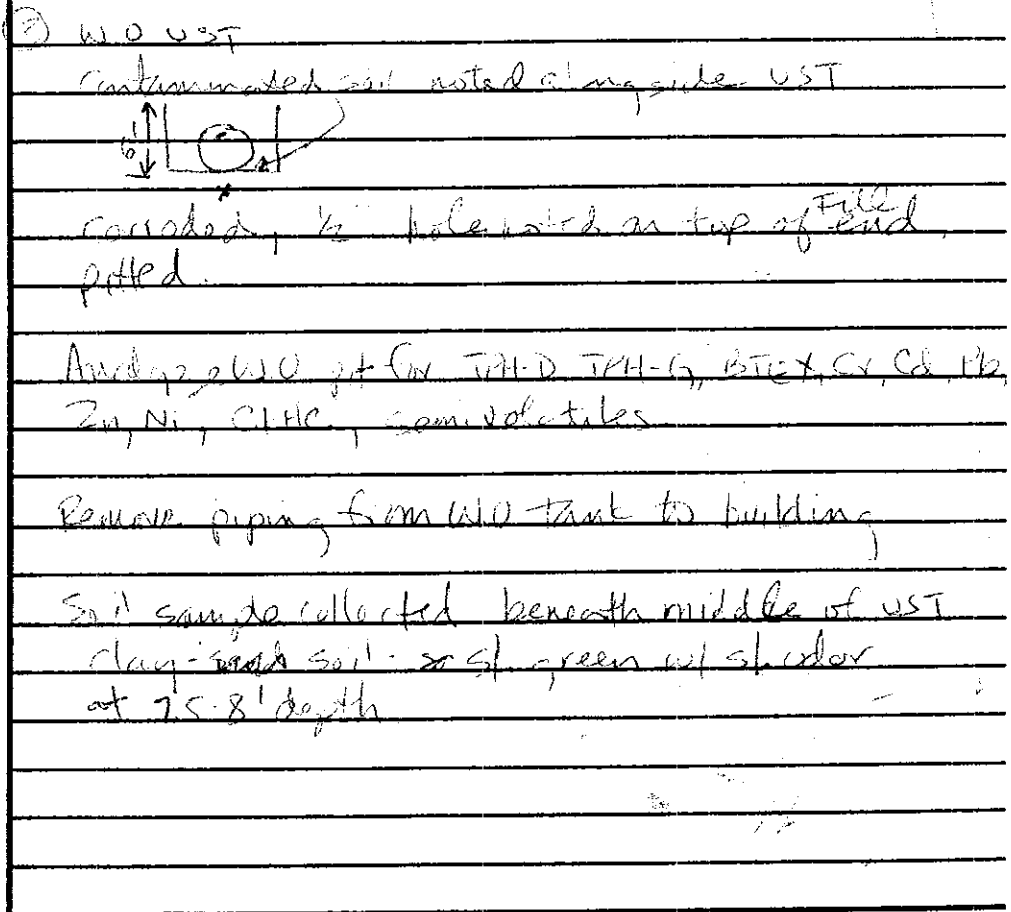 ② W.O UST
contaminated soil noted alongside UST
6'
x
corroded, ½" hole noted on top of Fill end,
pitted.
Analyze W.O pit for TPH-D TPH-G, BTEX, Cr, Cd, Pb,
Zn, Ni, Cl HC, semivolatiles
Remove piping from W.O Tank to building
Soil sample collected beneath middle of UST
clay- soil - sl. green w/ sl. odor
at 7.5-8' depth